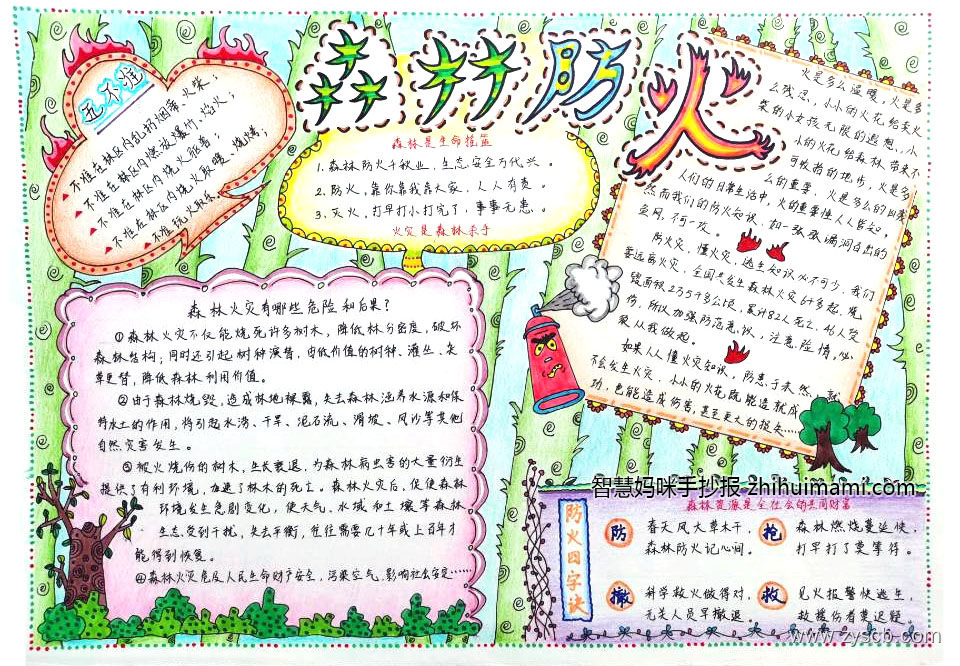 森林防火
五不准
不准在林区内乱扔烟蒂、火柴；
不准在林区内燃放爆竹、焰火；
不准在林区内烧火驱兽；
不准在林区内烧火取暖、烧烤；
不准玩火取乐。
森林是生命摇篮
1. 森林防火千秋业，生态安全万代兴。
2. 防火，靠你靠我靠大家，人人有责。
3. 灭火，打早打小打完了，事事无患。
火灾是森林杀手
火是多么温暖，火是多
么残忍，小小的火花给卖火
柴的小女孩无限的遐想，小
小的火花给森林带来不
可挽救的地步，火是多
么的重要，火是多么的
人们的日常生活中，火的重要性人人皆知，
然而我们的防火知识，如一张张漏洞百出的
鱼网，不可一攻。
防火灾，懂火灾，逃生知识必不可少，我们
要远离火灾，全国共发生森林火灾
死亡，
伤，所以加强防范意识，注意险情，
从我做起。
如果人人懂火灾知识，防患于未然，就
不会发生火灾，小小的火花既能造就成
功，也能造成伤害，甚至更大的损失……
森林火灾有哪些危险和后果？
①森林火灾不仅能烧死许多树木，降低林分密度，破坏
森林结构；同时还引起树种演替，由低价值的树种、灌丛、杂
草更替，降低森林利用价值。
②由于森林烧毁，造成林地裸露，失去森林涵养水源和保
持水土的作用，将引起水涝、干旱、泥石流、滑坡、风沙等其他
自然灾害发生。
③被火烧伤的树木，生长衰退，为森林病虫害的大量衍生
提供了有利环境，加速了林木的死亡。森林火灾后，促使森林
环境发生急剧变化，使天气、水域和土壤等森林
生态受到干扰，失去平衡，往往需要几十年或上百年才
能得到恢复。
④森林火灾危及人民生命财产安全，污染空气，影响社会安定……
智慧妈咪手抄报 zhihuimami.com
森林资源是全社会的共同财富
防火四字诀
防
春天风大草木干，
森林防火记心间。
抢
森林燃烧蔓延快，
打早打了莫等待。
撤
科学救火做得对，
无关人员早撤退。
救
见火报警快逃生，
救援伤者莫迟疑。
www.zyscb.com